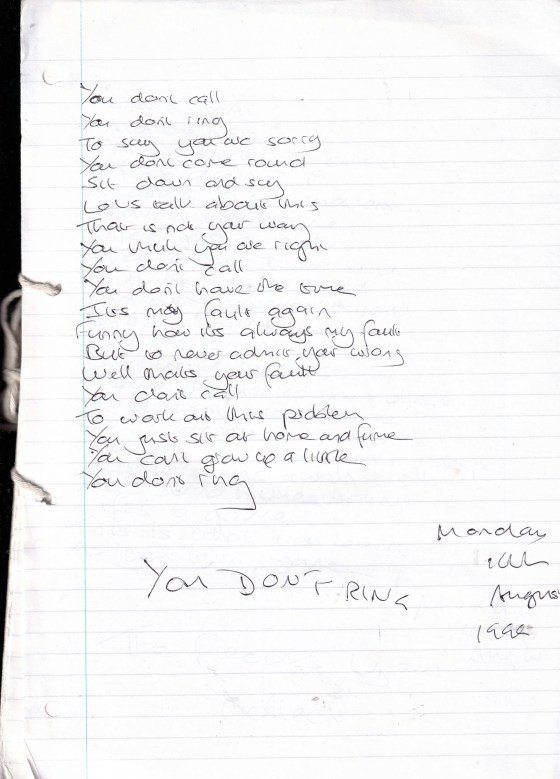 You don't call
You don't ring
To say you are sorry
You don't come round
Sit down and say
Lets talk about this
That is not your way
You think you are right
You don't call
You don't have the time
Its my fault again
Funny how its always my fault
But to never admit your wrong
Well thats your fault
You don't call
To work out this problem
You just sit at home and fume
You can't grow up a little
You don't ring
Monday
YOU DON'T RING
August